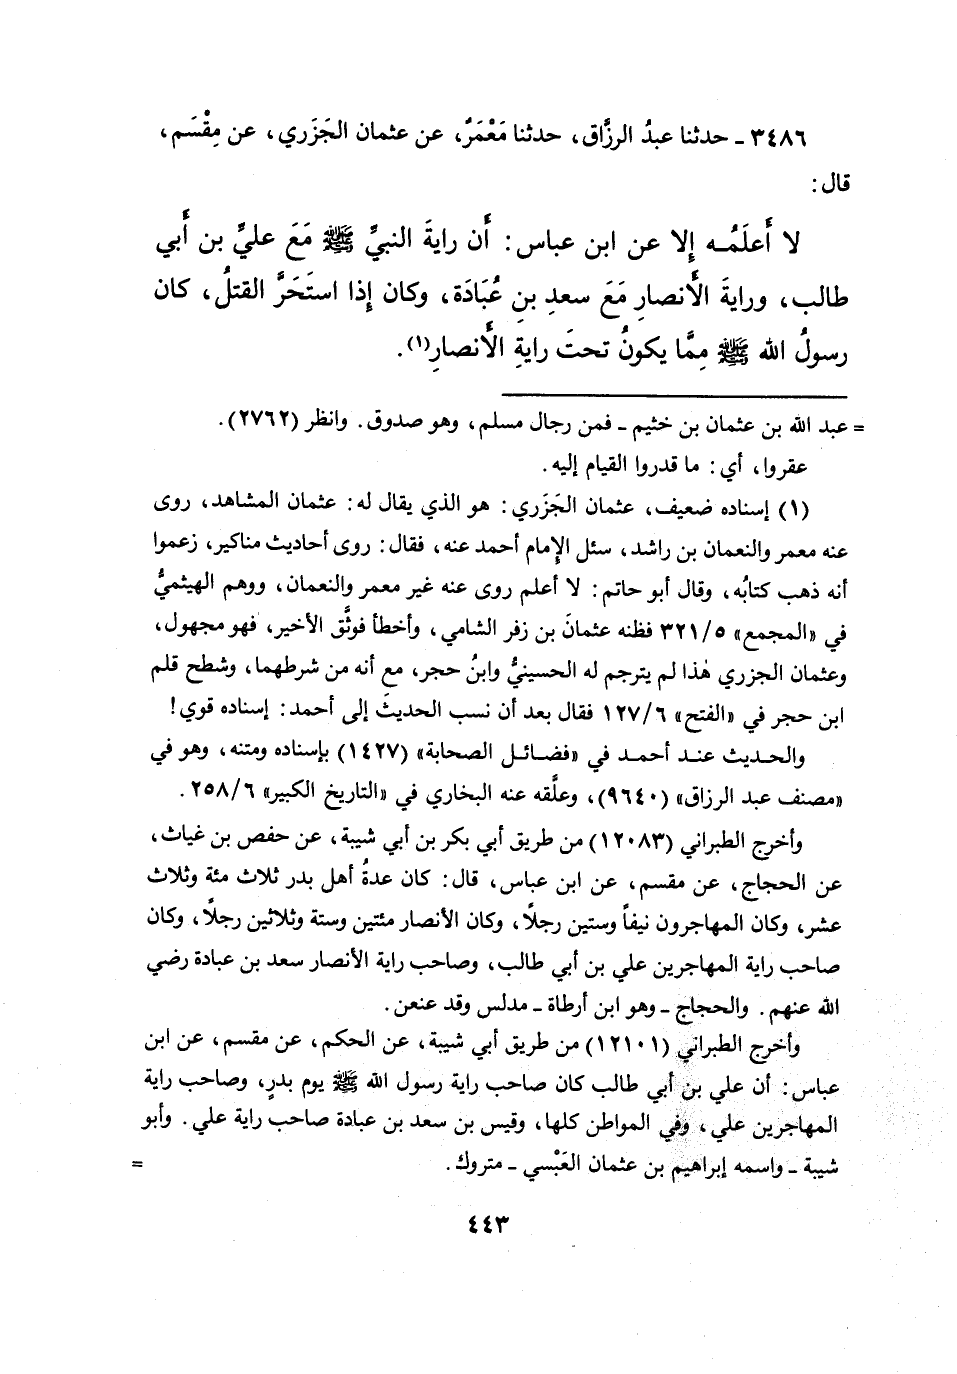 ٣٤٨٦ ـ حدثنا عبدُ الرزَّاق، حدثنا مَعْمَرٌ، عن عثمان الجَزَري، عن مِقْسَم،
قال:
لا أَعلَمُـه إلا عن ابن عباس: أَن رايةَ النبيِّ ﷺ مَعَ عليِّ بن أَبي
طالب، ورايةَ الأَنصارِ مَعَ سعدِ بنِ عُبَادَة، وكان إِذا استَحَرَّ القتلُ، كان
رسولُ الله ﷺ مِمَّا يكونُ تحتَ رايةِ الأَنصارِ(١).
= عبد الله بن عثمان بن خثيم ـ فمن رجال مسلم، وهو صدوق. وانظر (٢٧٦٢).
عقروا، أي: ما قدروا القيام إليه.
(١) إسناده ضعيف، عثمان الجَزَري: هو الذي يقال له: عثمان المشاهد، روى
عنه معمر والنعمان بن راشد، سئل الإمام أحمد عنه، فقال: روى أحاديث مناكير، زعموا
أنه ذهب كتابُه، وقال أبو حاتم: لا أعلم روى عنه غير معمر والنعمان، ووهم الهيثميُّ
في «المجمع» ٣٢١/٥ فظنه عثمانَ بن زفر الشامي، وأخطأ فوثَّق الأخير، فهو مجهول،
وعثمان الجزري هٰذا لم يترجم له الحسينيُّ وابنُ حجر، مع أنه من شرطهما، وشطح قلم
ابن حجر في «الفتح» ١٢٧/٦ فقال بعد أن نسب الحديثَ إلى أحمد: إسناده قوي!
والحـديث عنـد أحمـد في «فضـائـل الصحابة» (١٤٢٧) بإسناده ومتنه، وهو في
«مصنف عبد الرزاق» (٩٦٤٠)، وعلَّقه عنه البخاري في «التاريخ الكبير» ٢٥٨/٦.
وأخرج الطبراني (١٢٠٨٣) من طريق أبي بكر بن أبي شيبة، عن حفص بن غياث،
عن الحجاج، عن مقسم، عن ابن عباس، قال: كان عدةُ أهل بدر ثلاث مئة وثلاث
عشر، وكان المهاجرون نيفاً وستين رجلًا، وكان الأنصار مئتين وستة وثلاثين رجلًا، وكان
صاحب راية المهاجرين علي بن أبي طالب، وصاحب راية الأنصار سعد بن عبادة رضي
الله عنهم. والحجاج ـ وهو ابن أرطاة ـ مدلس وقد عنعن.
وأخرج الطبراني (١٢١٠١) من طريق أبي شيبة، عن الحكم، عن مقسم، عن ابن
عباس: أن علي بن أبي طالب كان صاحب راية رسول الله ﷺ يوم بدرٍ، وصاحب راية
المهاجرين علي، وفي المواطن كلها، وقيس بن سعد بن عبادة صاحب راية علي. وأبو
شيبة ـ واسمه إبراهيم بن عثمان العَبْسي ـ متروك. =
٤٤٣